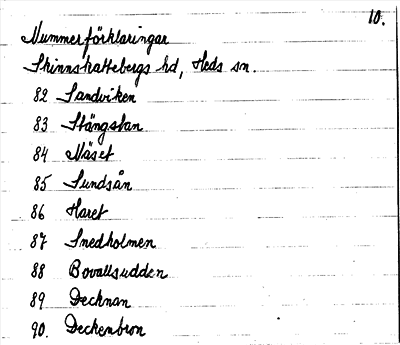 10.
Nummerförklaringar
Skinnskattebergs hd, Heds sn.
82 Sandviken
83 Stångstan
84 Näset
85 Sundsån
86 Haret
87 Snedholmen
88 Bovallsudden
89 Decknan
90. Deckenbron